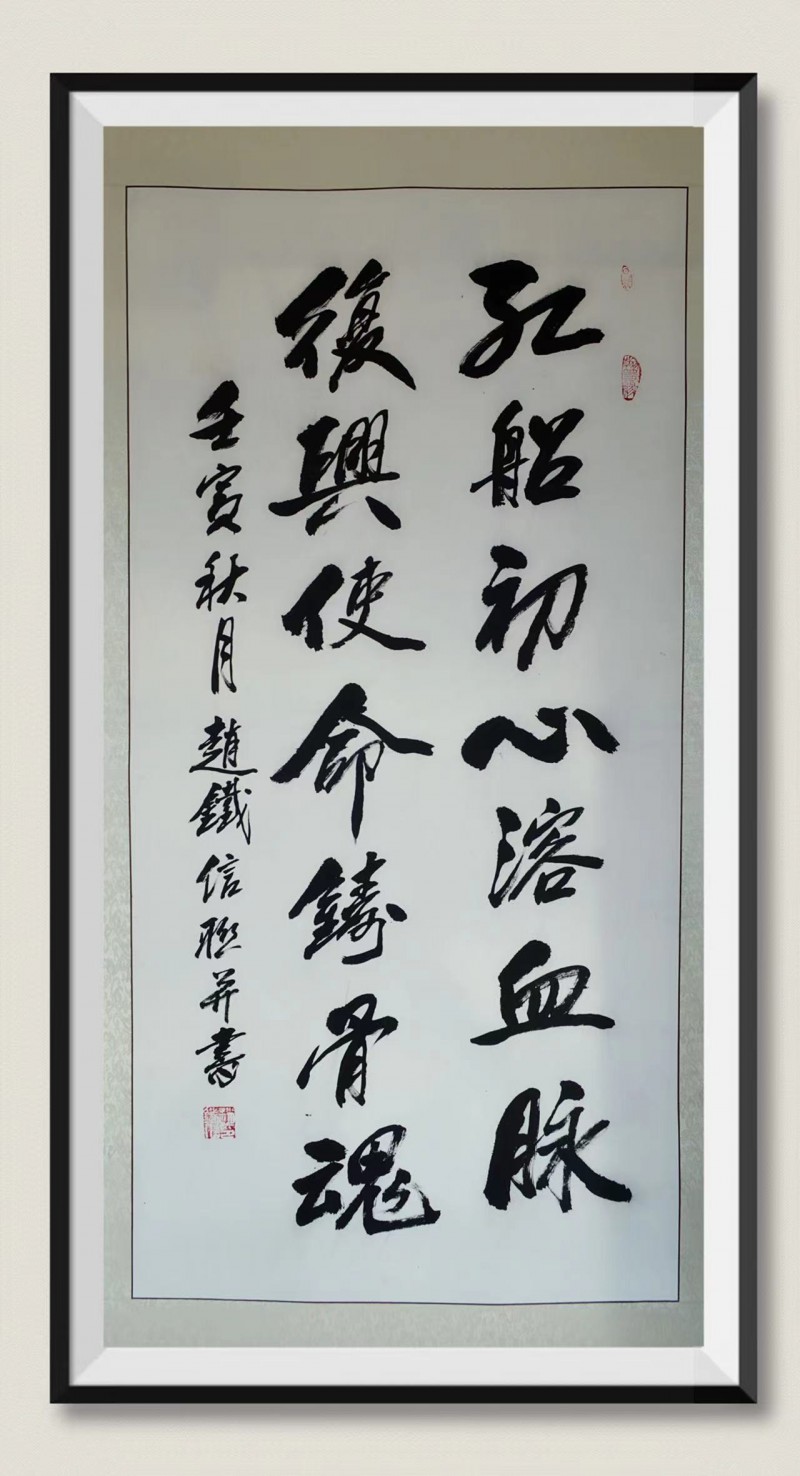 红船初心溶血脉
復興使命鑄骨魂
壬寅秋月趙鐵信联并書